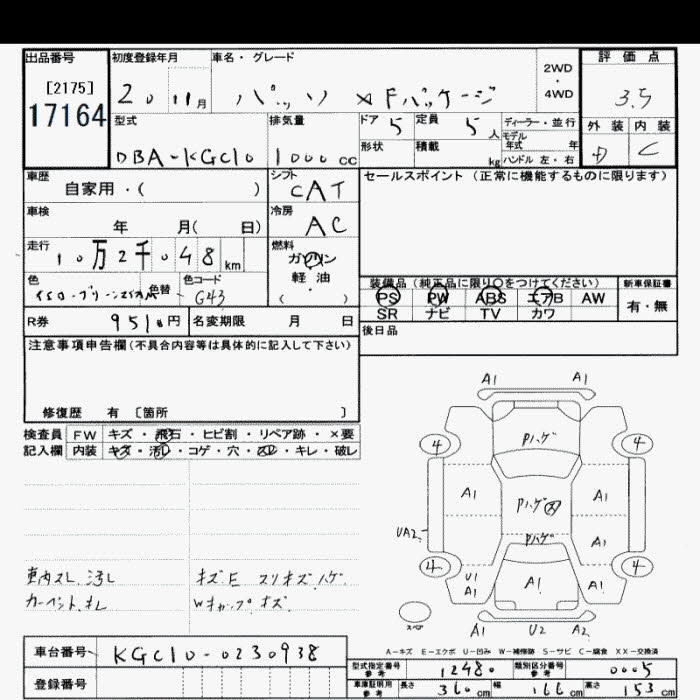 出品番号
[2175]
17164
初度登録年月
20 11月
車名・グレード
パッソ X Fパッケージ
2WD
・
4WD
評価点
3.5
型式
DBA-KGC10
排気量
1000 cc
ドア 5
定員 5 人
ディーラー・並行
モデル
年式 年
形状
積載 kg
ハンドル 左・右
外装 内装
D C
車歴
自家用・( )
シフト
CAT
セールスポイント (正常に機能するものに限ります)
車検
年 月( 日)
冷房
AC
走行
10万2千048km
燃料
ガソリン
軽・油
( )
色
色替
色コード
G43
装備品 (純正品に限り○をつけてください)
新車保証書
PS PW ABS エアB AW
SR ナビ TV カワ
有・無
R券 9510円
名変期限 月 日
後日品
注意事項申告欄(不具合内容等は具体的に記入して下さい)
修復歴 有 〔箇所 〕
検査員 FW キズ・飛石・ヒビ割・リペア跡・×要
記入欄 内装 キズ・汚レ・コゲ・穴・スレ・キレ・破レ
A1 A1
Pハゲ
4 4
A1 Pハゲ A1
UA2
Pハゲ A1
4 4
U1
A1 A1 A1
スペア
A1 U2 A2
車内スレ、汚レ
キズE スリキズ、ハゲ
Wキャップキズ
A-キズ E-エクボ U-凹み W-補修跡 S-サビ C-腐食 XX-交換済
車台番号 KGC10-0230938
登録番号
型式指定番号
参考 12480
類別区分番号
参考 0005
車庫証明用
参考 長さ 360cm 幅 166cm 高さ 153cm